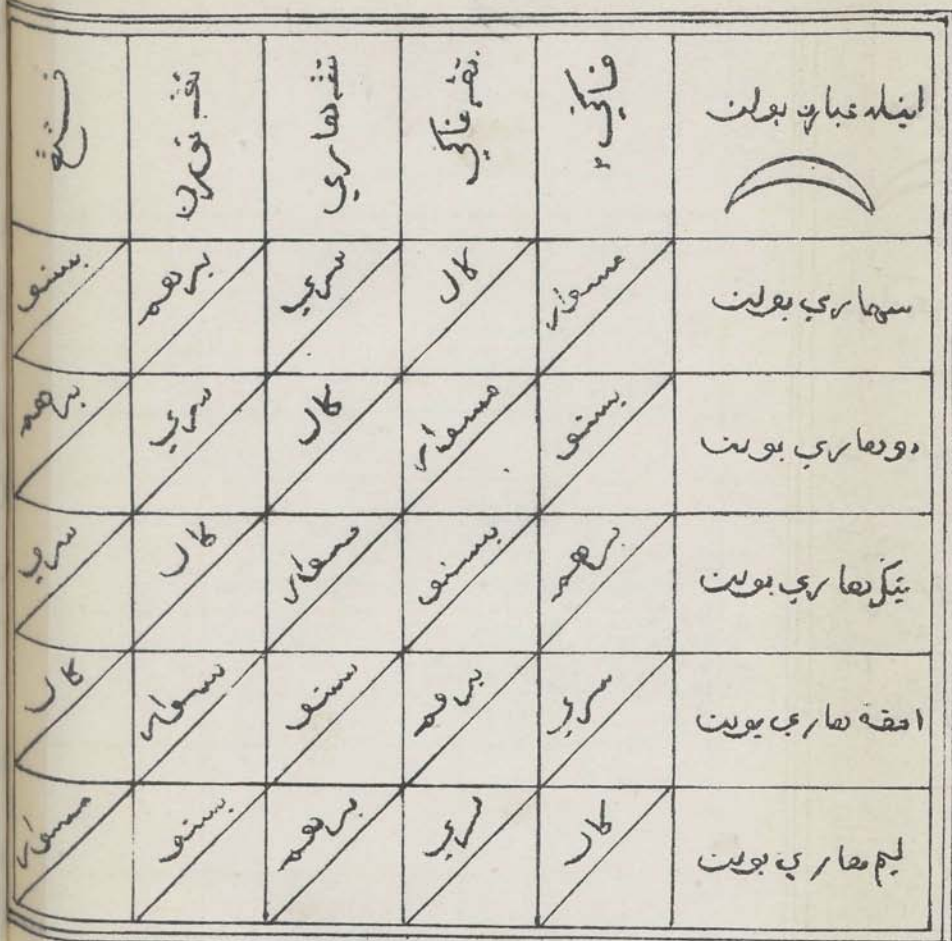 اينله عبارة بولن فاكي٢ تڠه فاكي تڠه هاري تڠه تورن فتڠ
سهاري بولن مسوار كال سري برهم بسنو
دوهاري بولن بسنو مسوار كال سري برهم
تيݢ هاري بولن برهم بسنو مسوار كال سري
امفة هاري بولن سري برهم بسنو مسوار كال
ليم هاري بولن كال سري برهم بسنو مسوار